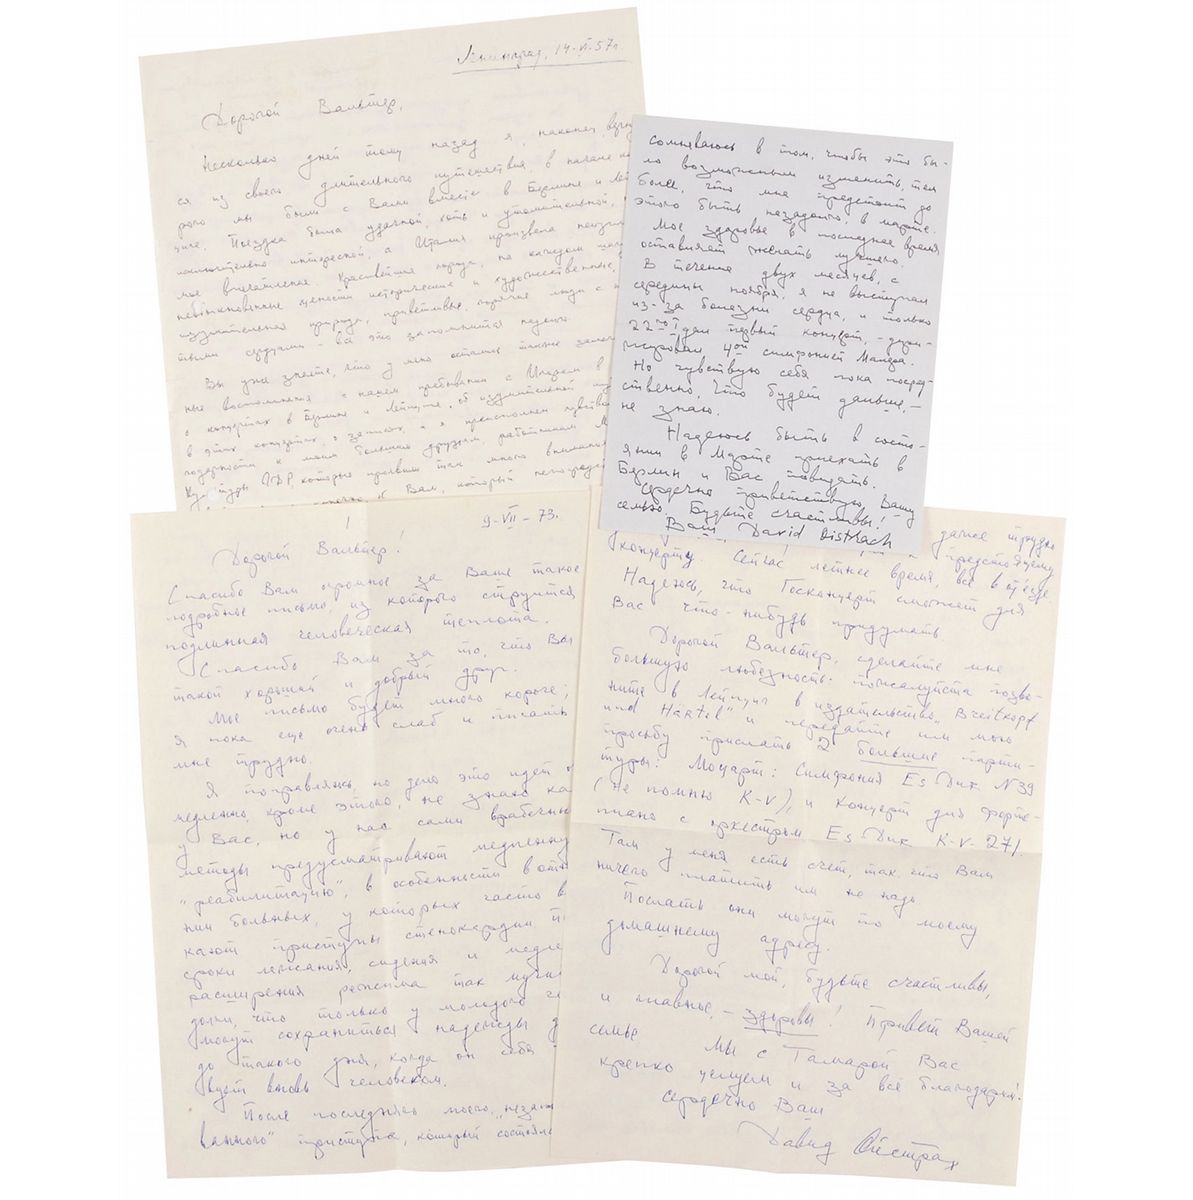 Ленинград, 14-VI-57г.
Дорогой Вальтер,
Несколько дней тому назад я, наконец, верну
ся из своего длительного путешествия, в начале ко
рого мы были с Вами вместе в Берлине и Лей
циге. Поездка была удачной, хоть и утомительной,
интересной, а Италия произвела неизгл
мое впечатление. Красивейшие города, на каждом шагу
исторические и художественные,
изумительная природа, приветливые, горячие люди с
тыми сердцами – всё это запомнится надолго.
Вы уже знаете, что у меня остались также
ные воспоминания о нашем пребывании с Игорем в
о концертах в Берлине и Лейпциге, об изумительной
в этих концертах, о записях, и я преисполнен чувства
годарности к моим большим друзьям, работникам М
Культуры ГДР, которые проявили так много внимания
конечно, к Вам, который
сомневаюсь в том, чтобы это бы-
ло возможным изменить, тем
более, что мне предстоит до
этого быть незадолго, в марте.
Мое здоровье в последнее время
оставляет желать лучшего.
В течение двух месяцев, с
середины ноября, я не выступал
из-за болезни сердца, и только
22го I дал первый концерт, – дири-
жировал 4ой симфонией Малера.
Но чувствую себя пока посред-
ственно. Что будет дальше, –
не знаю.
Надеюсь быть в состо-
янии в Марте приехать в
Берлин и Вас повидать.
Сердечно приветствую Вашу
семью. Будьте счастливы!
Ваш David Oistrach
9-VII-73.
Дорогой Вальтер!
Спасибо Вам огромное за Ваше такое
подробное письмо, из которого струится
подлинная человеческая теплота.
Спасибо Вам за то, что Вы
такой хороший и добрый друг.
Мое письмо будет много короче;
я пока еще очень слаб и писать
мне трудно.
Я поправляюсь, но дело это идет
медленно, кроме этого, не знаю как
у Вас, но у нас сами врачебные
методы предусматривают медленную
"реабилитацию", в особенности в отн
нии больных, у которых часто в
кают приступы стенокардии. П
сроки лежания, сидения и медле
расширения режима так мучи
долки, что только у молодого че
могут сохраниться надежды д
до такого дня, когда он себя
вует вновь человеком.
После последнего моего, "незап
ванного" приступа, который состоялс
даже трудно
предстоящему
концерту. Сейчас летнее время, все в отъезде.
Надеюсь, что Госконцерт сможет для
Вас что-нибудь придумать.
Дорогой Вальтер, сделайте мне
большую любезность: пожалуйста позво-
ните в Лейпциг в издательство "Breitkopf
und Härtel" и передайте им мою
просьбу прислать 2 большие парти-
туры: Моцарт: Симфония Es Дик N39
(не помню K-V), и Концерт для форте-
пиано с оркестром Es Дик K-V-271.
Там у меня есть счет, так что Вам
ничего платить им не надо.
Послать они могут по моему
домашнему адресу.
Дорогой мой, будьте счастливы,
и главное, – здоровы! Привет Вашей
семье. Мы с Тамарой Вас
крепко целуем и за всё благодарим!
Сердечно Ваш
Давид Ойстрах